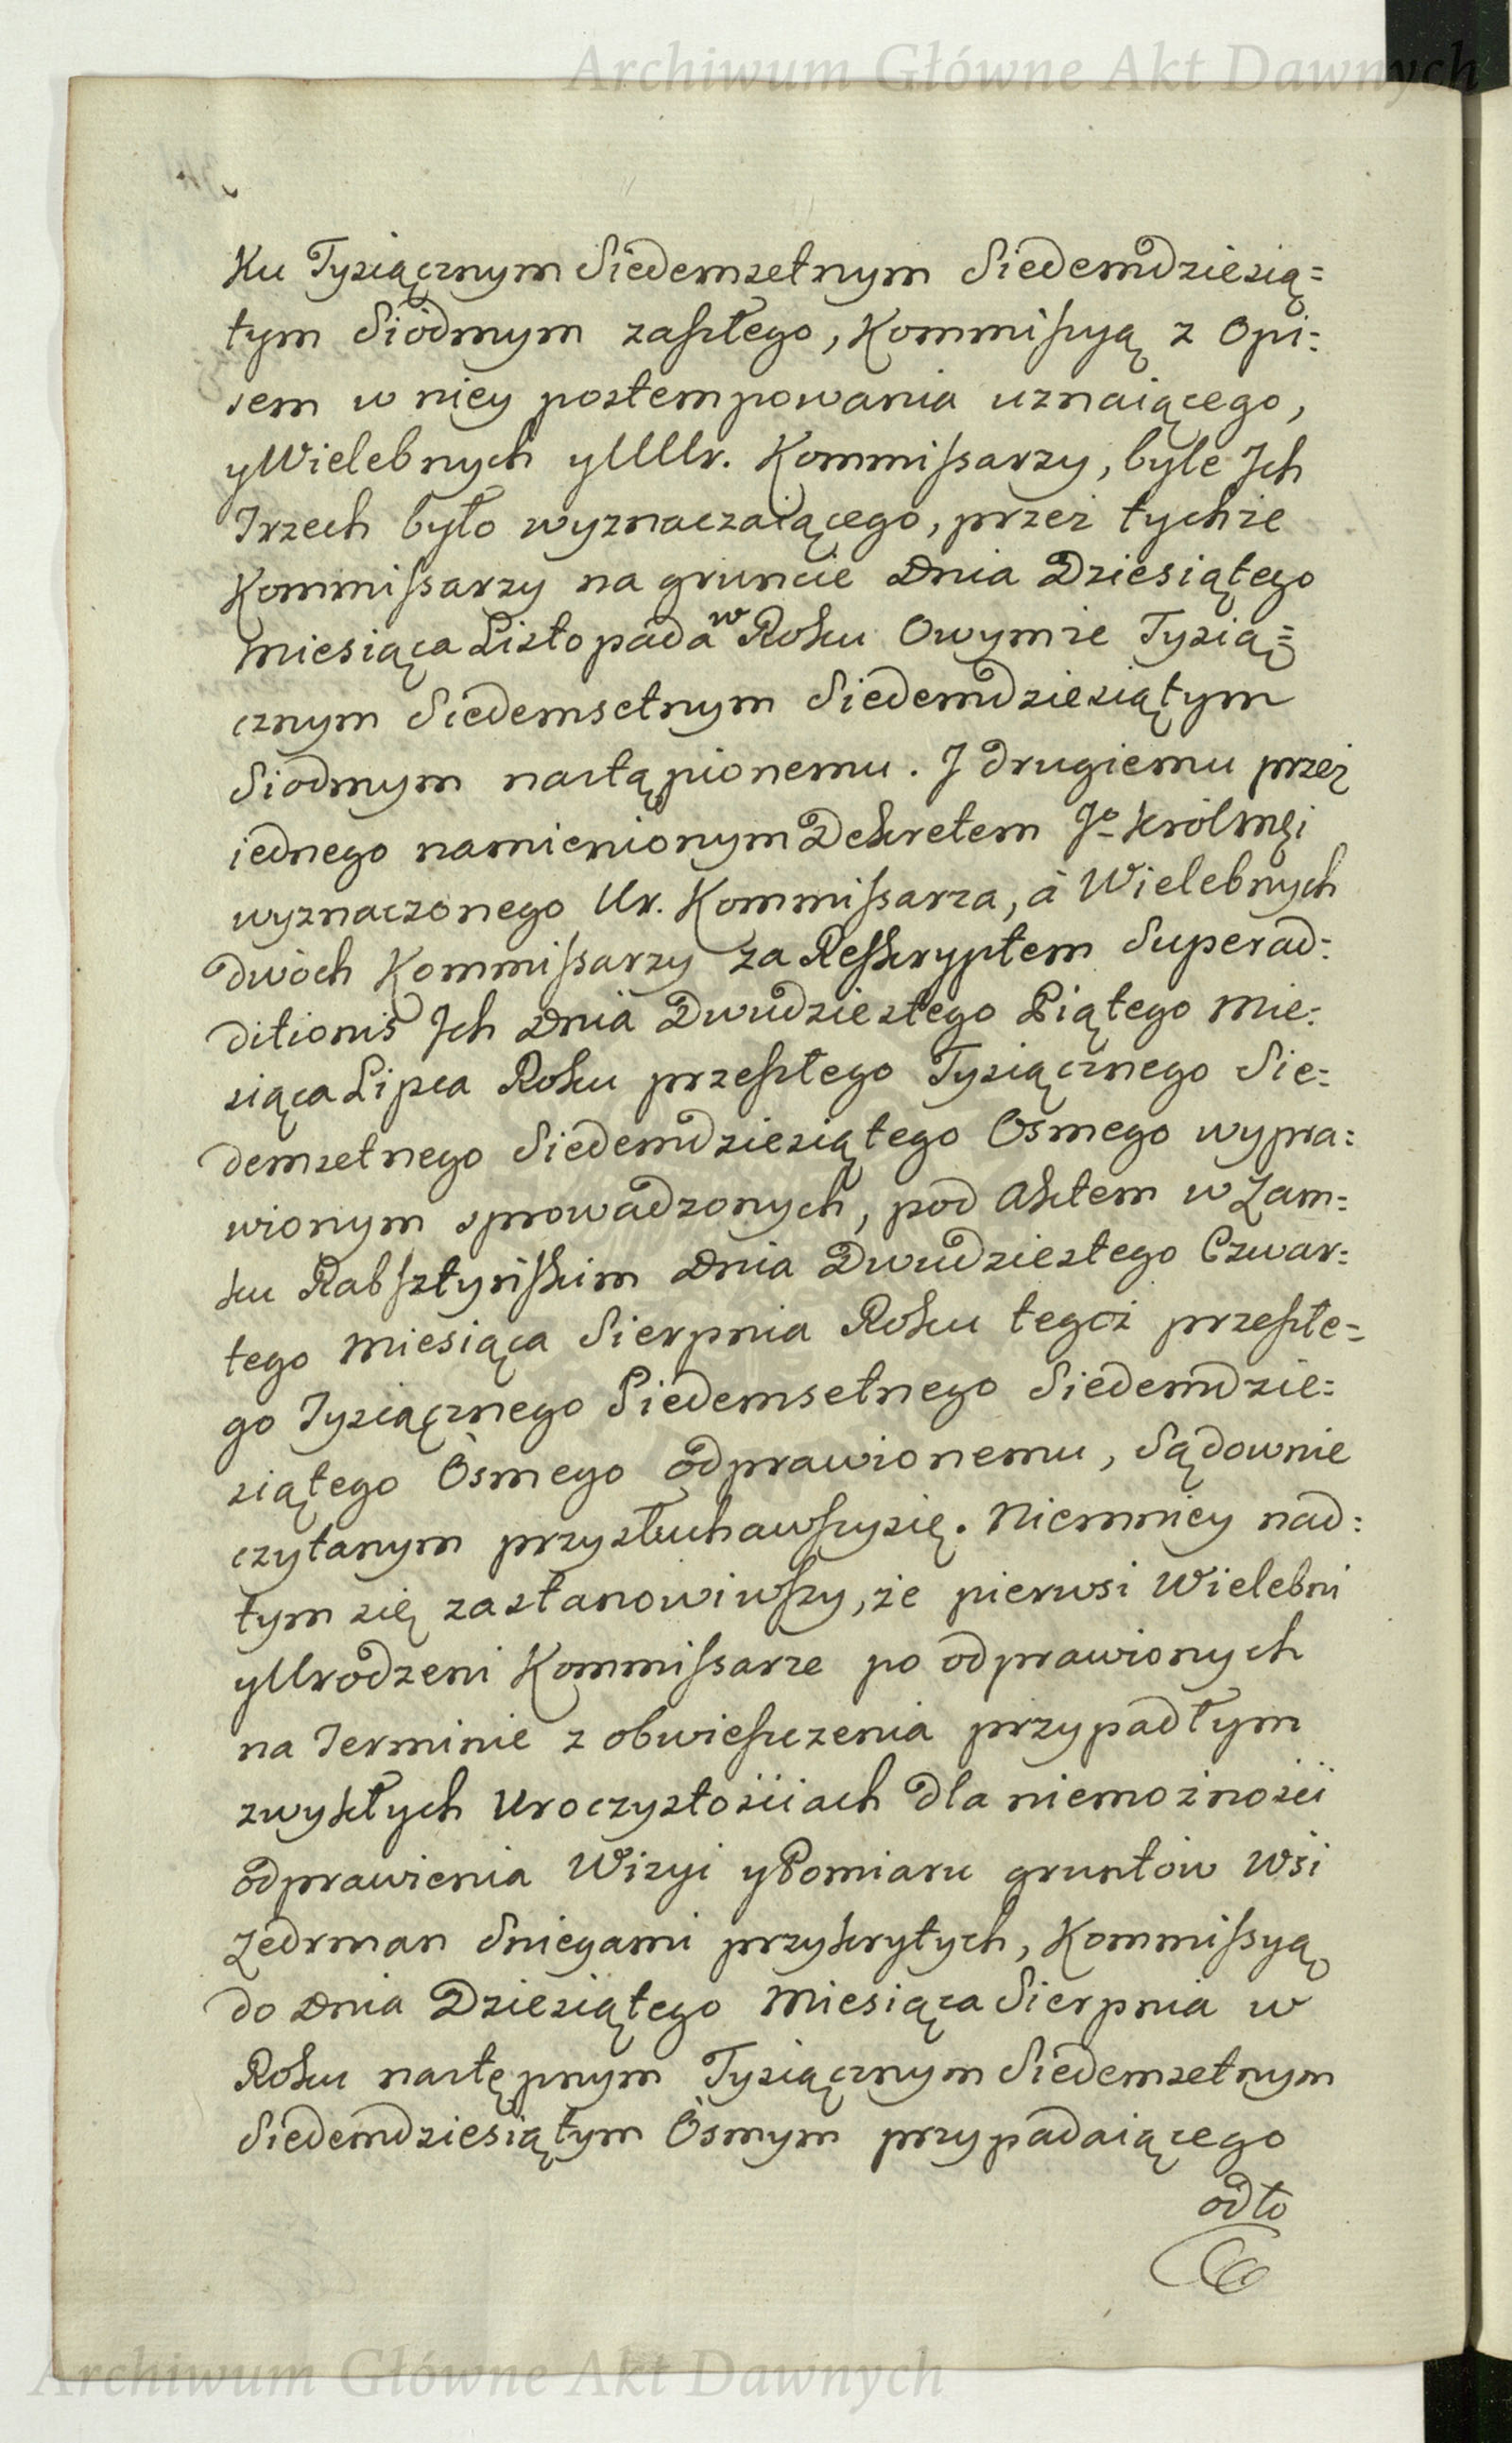 Archiwum Główne Akt Dawnych
ku Tysiącznym Siedemsetnym Siedemdziesią=
tym Siódmym zaszłego, Kommissyą z Opi=
sem w niey postempowania uznaiącego,
y Wielebnych y UUUr. Kommissarzy, byle Ich
Trzech było wyznaczaiącego, przez tychże
Kommissarzy na gruncie Dnia Dziesiątego
Miesiąca Listopada w Roku Owymże Tysią=
cznym Siedemsetnym Siedemdziesiątym
Siodmym nastąpionemu. I drugiemu przez
iednego namienionym Dekretem Jo Królmci
wyznaczonego Ur. Kommissarza, à Wielebnych
dwóch Kommissarzy za Reskryptem Superad=
ditionis Ich Dnia Dwudziestego Piątego Mie=
siąca Lipca Roku przeszłego Tysiącznego Sie=
demsetnego Siedemdziesiątego Osmego wypra=
wionym sprowadzonych, pod Aktem w Zam=
ku Rabsztyńskim Dnia Dwudziestego Czwar=
tego Miesiąca Sierpnia Roku tegoż przeszłe=
go Tysiącznego Siedemsetnego Siedemdzie=
siątego Osmego odprawionemu, Sądownie
czytanym przysłuchawszysię. Niemniey nad=
tym się zastanowiwszy, że pierwsi Wielebni
y Urodzeni Kommissarze po odprawionych
na Terminie z obwieszczenia przypadłym
zwykłych Uroczystościach dla niemożności
odprawienia Wizyi y Pomiaru gruntów Wsi
Zedrman Sniegami przykrytych, Kommissyą
do Dnia Dziesiątego Miesiąca Sierpnia w
Roku następnym Tysiącznym Siedemsetnym
Siedemdziesiątym Osmym przypadaiącego
odło
Archiwum Główne Akt Dawnych